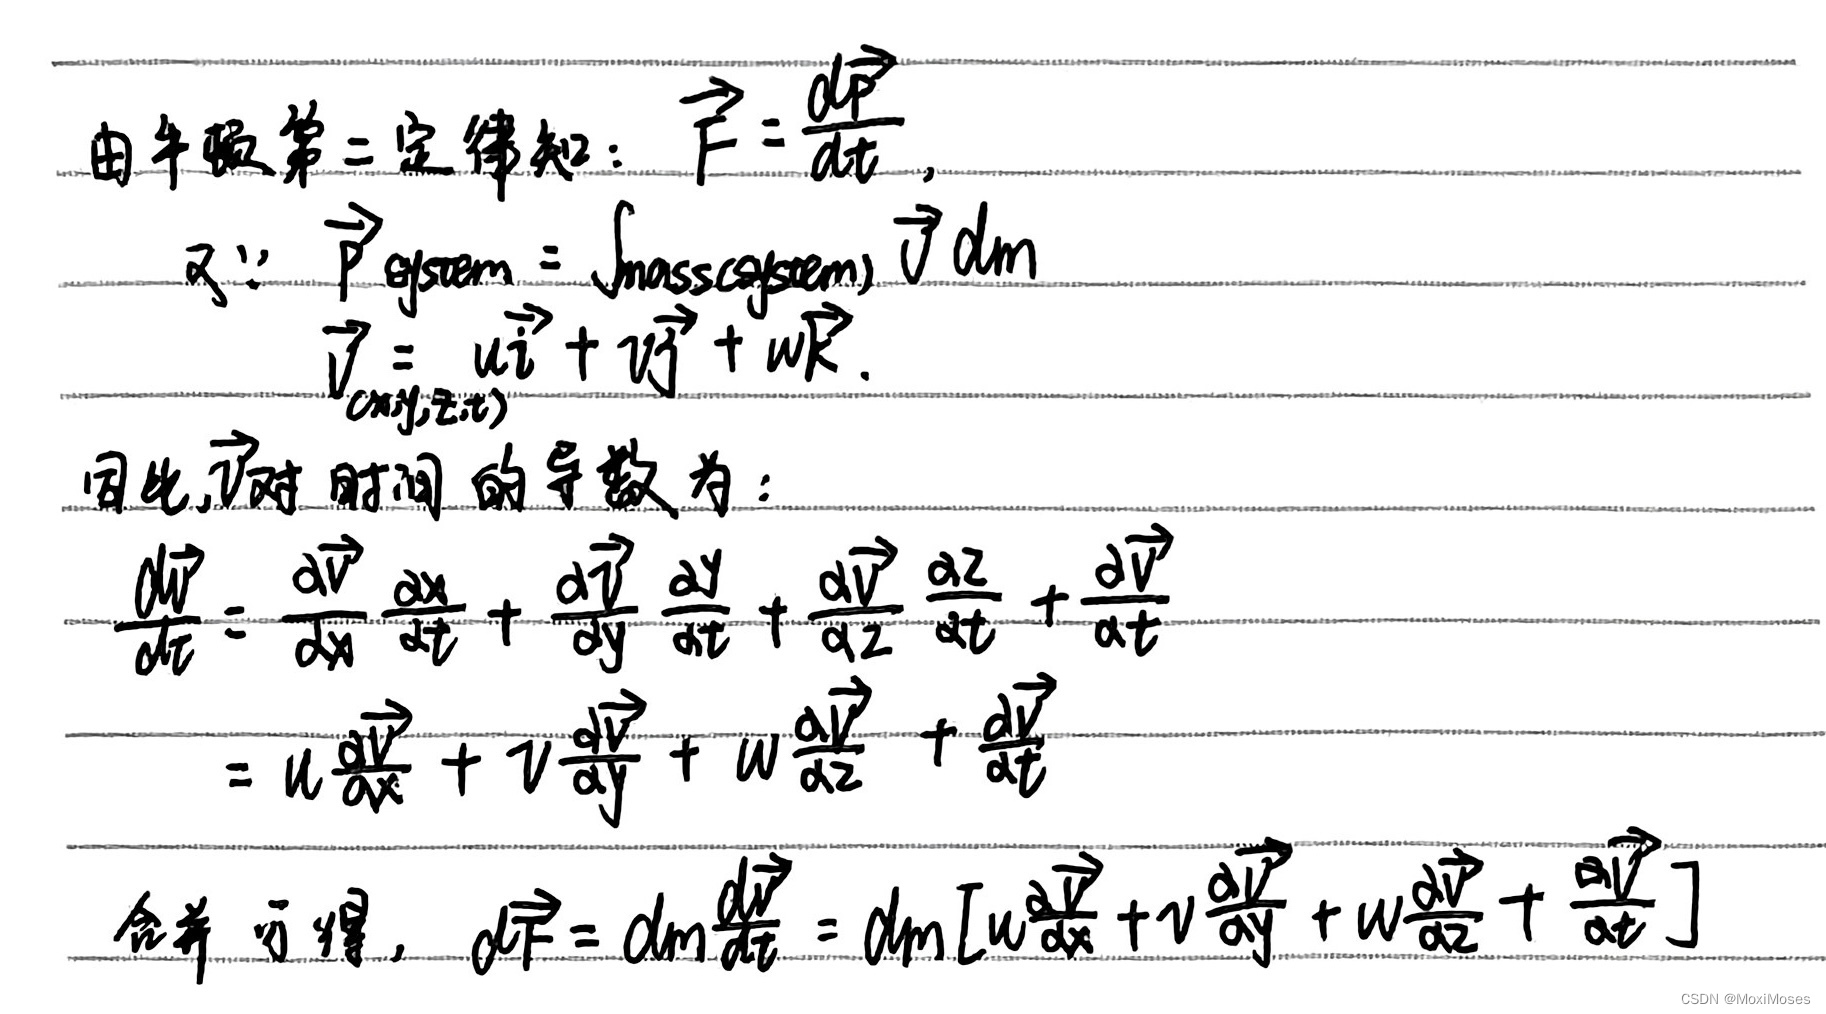 由牛顿第二定律知: $\vec{F} = \frac{d\vec{P}}{dt}$,
又∵ $\vec{P}_{system} = \int_{mass(system)} \vec{V} dm$
$\vec{V}_{(x,y,z,t)} = u\vec{i} + v\vec{j} + w\vec{k}.$
因此,$\vec{V}$对时间的导数为:
$\frac{d\vec{V}}{dt} = \frac{\partial \vec{V}}{\partial x} \frac{\partial x}{\partial t} + \frac{\partial \vec{V}}{\partial y} \frac{\partial y}{\partial t} + \frac{\partial \vec{V}}{\partial z} \frac{\partial z}{\partial t} + \frac{\partial \vec{V}}{\partial t}$
$= u \frac{\partial \vec{V}}{\partial x} + v \frac{\partial \vec{V}}{\partial y} + w \frac{\partial \vec{V}}{\partial z} + \frac{\partial \vec{V}}{\partial t}$
合并可得, $d\vec{F} = dm \frac{d\vec{V}}{dt} = dm [u \frac{\partial \vec{V}}{\partial x} + v \frac{\partial \vec{V}}{\partial y} + w \frac{\partial \vec{V}}{\partial z} + \frac{\partial \vec{V}}{\partial t}]$
CSDN @MoxiMoses